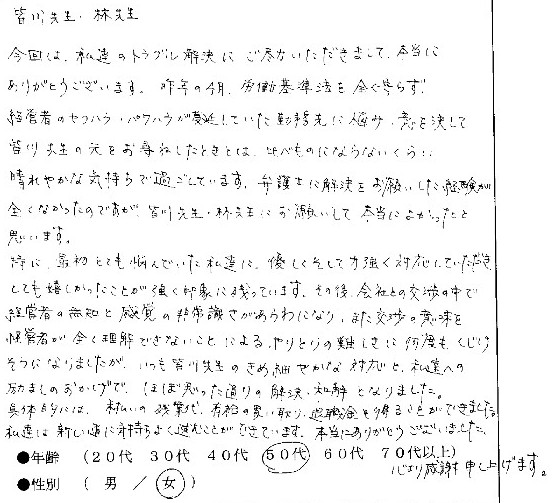 皆川先生・林先生
今回は、私達のトラブル解決にご尽力いただきまして、本当に
ありがとうございます。昨年の4月、労働基準法を全く守らず、
経営者のセクハラ・パワハラが蔓延していた勤務先に悩み、意を決して
皆川先生の元をお尋ねしたときとは、比べものにならないくらい
晴れやかな気持ちで過ごしています。弁護士に解決をお願いした経験が
全くなかったのですが、皆川先生・林先生にお願いして本当によかったと
思います。
特に、最初とても悩んでいた私達に、優しくそして力強く対応していただき
とても嬉しかったことが強く印象に残っています。その後、会社との交渉の中で
経営者の無知と感覚の非常識さがあらわになり、また交渉の意味を
経営者が全く理解できないことによる、やりとりの難しさに何度もくじけ
そうになりましたが、いつも皆川先生のきめ細やかな対応と、私達への
励ましのおかげで、ほぼ思った通りの解決・和解となりました。
具体的には、未払い残業代、有給の買い取り、退職金を得ることができました。
私達は新しい道に気持ちよく進むことができています。本当にありがとうございました。
心より感謝申し上げます。
●年齢 （20代 30代 40代 50代 60代 70代以上）
●性別 （ 男 ／ 女 ）